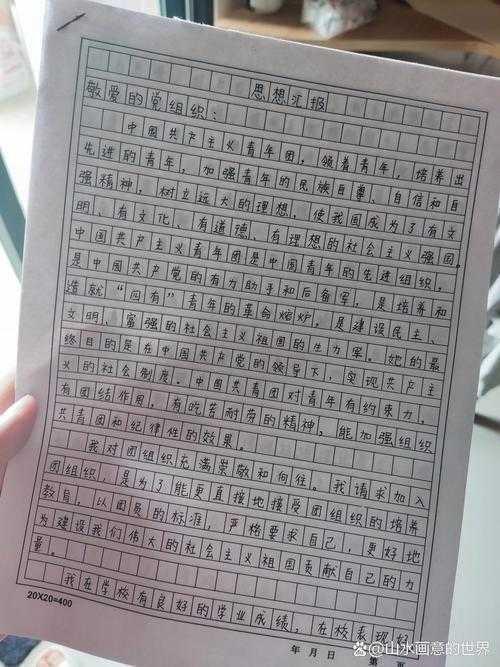 思想汇报
敬爱的党组织：
中国共产主义青年团，领着青年，培养出
先进的青年，加强青年的民族自尊、自信和自
强精神，树立远大的理想，使我国成为了有文
明、有文化、有道德、有理想的社会主义强国。
中国共产主义青年团是中国青年的先进组织，
是中国共产党的有力助手和后备军，是培养和
造就“四有”青年的革命熔炉，是建设民主、
文明、富强的社会主义祖国的生力军。她的最
终目的是在中国共产党的领导下，实现共产主
义的社会制度。中国共青团对青年有约束力，
有团结作用，有吃苦耐劳的精神，能加强组织
共青团和纪律性的效果。
我对团组织充满崇敬和向往。我请求加入
团组织，是为了能更直接地接受团组织的培养
教育，以团员的标准，严格要求自己，更好地
为建设我们伟大的社会主义祖国贡献自己的力
量。
我在学校有良好的学业成绩，在校表现好
20X20=400
年 月 日 第 页
百家号/山水画意的世界